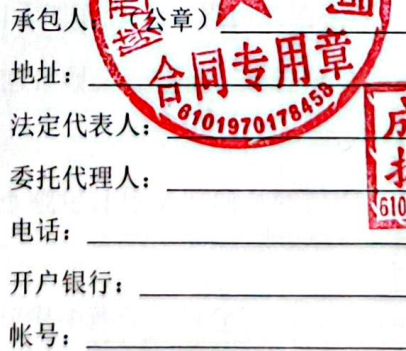 承包人：（公章）
地址：
合同专用章
6101970178458
法定代表人：
委托代理人：
610
电话：
开户银行：
帐号：